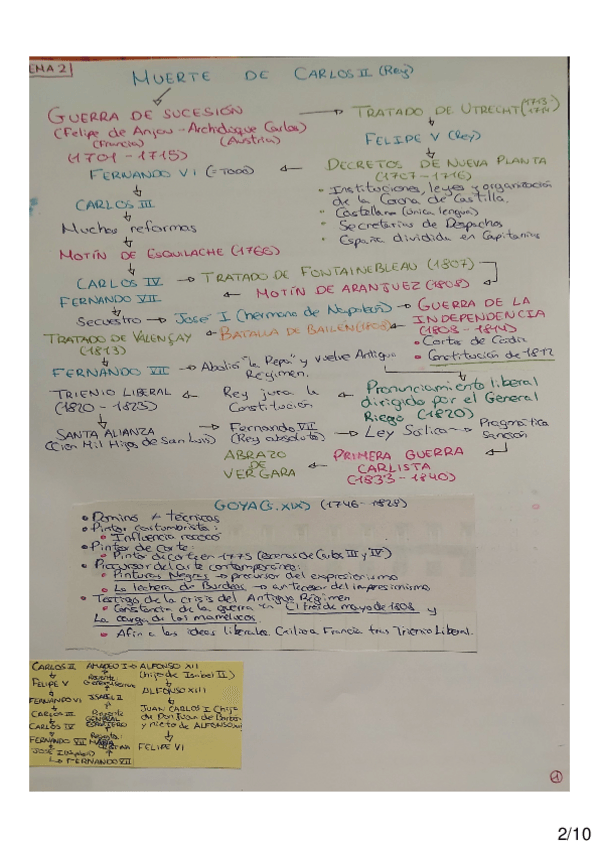 EMA 2
MUERTE DE CARLOS II (Rey)
GUERRA DE SUCESIÓN → TRATADO DE UTRECHT (1713/
(Felipe de Anjou - Archiduque Carlos)
(Francia) (Austria)
FELIPE V (Rey)
(1701 - 1715)
DECRETOS DE NUEVA PLANTA
(1707 - 1716)
FERNANDO VI
• Instituciones, leyes y organización
de la Corona de Castilla.
CARLOS III
• Castellano (única lengua)
Muchas reformas
• Secretarios de Despachos
• España dividida en Capitanías
MOTÍN DE ESQUILACHE (1766)
CARLOS IV → TRATADO DE FONTAINEBLEAU (1807)
FERNANDO VII ← MOTÍN DE ARANJUEZ (1808)
Secuestro → José I (hermano de Napoleón) → GUERRA DE LA
INDEPENDENCIA
(1808 - 1814)
TRATADO DE VALENÇAY ← BATALLA DE BAILÉN (1808)
(1813)
• Cortes de Cádiz
• Constitución de 1812
FERNANDO VII → Abolió "la Pepa" y vuelve Antiguo
Régimen.
Pronunciamiento liberal
dirigido por el General
Riego (1820)
TRIENIO LIBERAL ← Rey jura la
(1820 - 1823) Constitución
SANTA ALIANZA → Fernando VII → Ley Sálica → Pragmática
(Cien Mil Hijos de San Luis) (Rey absoluto) Sanción
ABRAZO
DE
VERGARA
← PRIMERA GUERRA
CARLISTA
(1833 - 1840)
GOYA (s. XIX) (1746 - 1828)
• Dominó técnicas
• Pintor costumbrista:
• Influencia rococó
• Pintor de corte:
• Pintor de corte en 1775 (escenas de Carlos III y IV)
• Precursor del arte contemporáneo:
• Pinturas Negras → precursor del expresionismo
• La lechera de Burdeos → antecesor del impresionismo
• Testigo de la crisis del Antiguo Régimen
• Constancia de la guerra en El tres de mayo de 1808 y
La carga de los mamelucos.
• Afín a las ideas liberales. Exilio a Francia tras Trienio Liberal.
CARLOS II
FELIPE V
FERNANDO VI
CARLOS III
CARLOS IV
FERNANDO VII
JOSÉ I
↳ FERNANDO VII
Regente:
MARÍA
CRISTINA
Regente
GENERAL
ESPARTERO
ISABEL II
AMADEO I → ALFONSO XII
(hijo de Isabel II)
ALFONSO XIII
JUAN CARLOS I (hijo
de Don Juan de Borbón
y nieto de ALFONSO
FELIPE VI
1
2/10